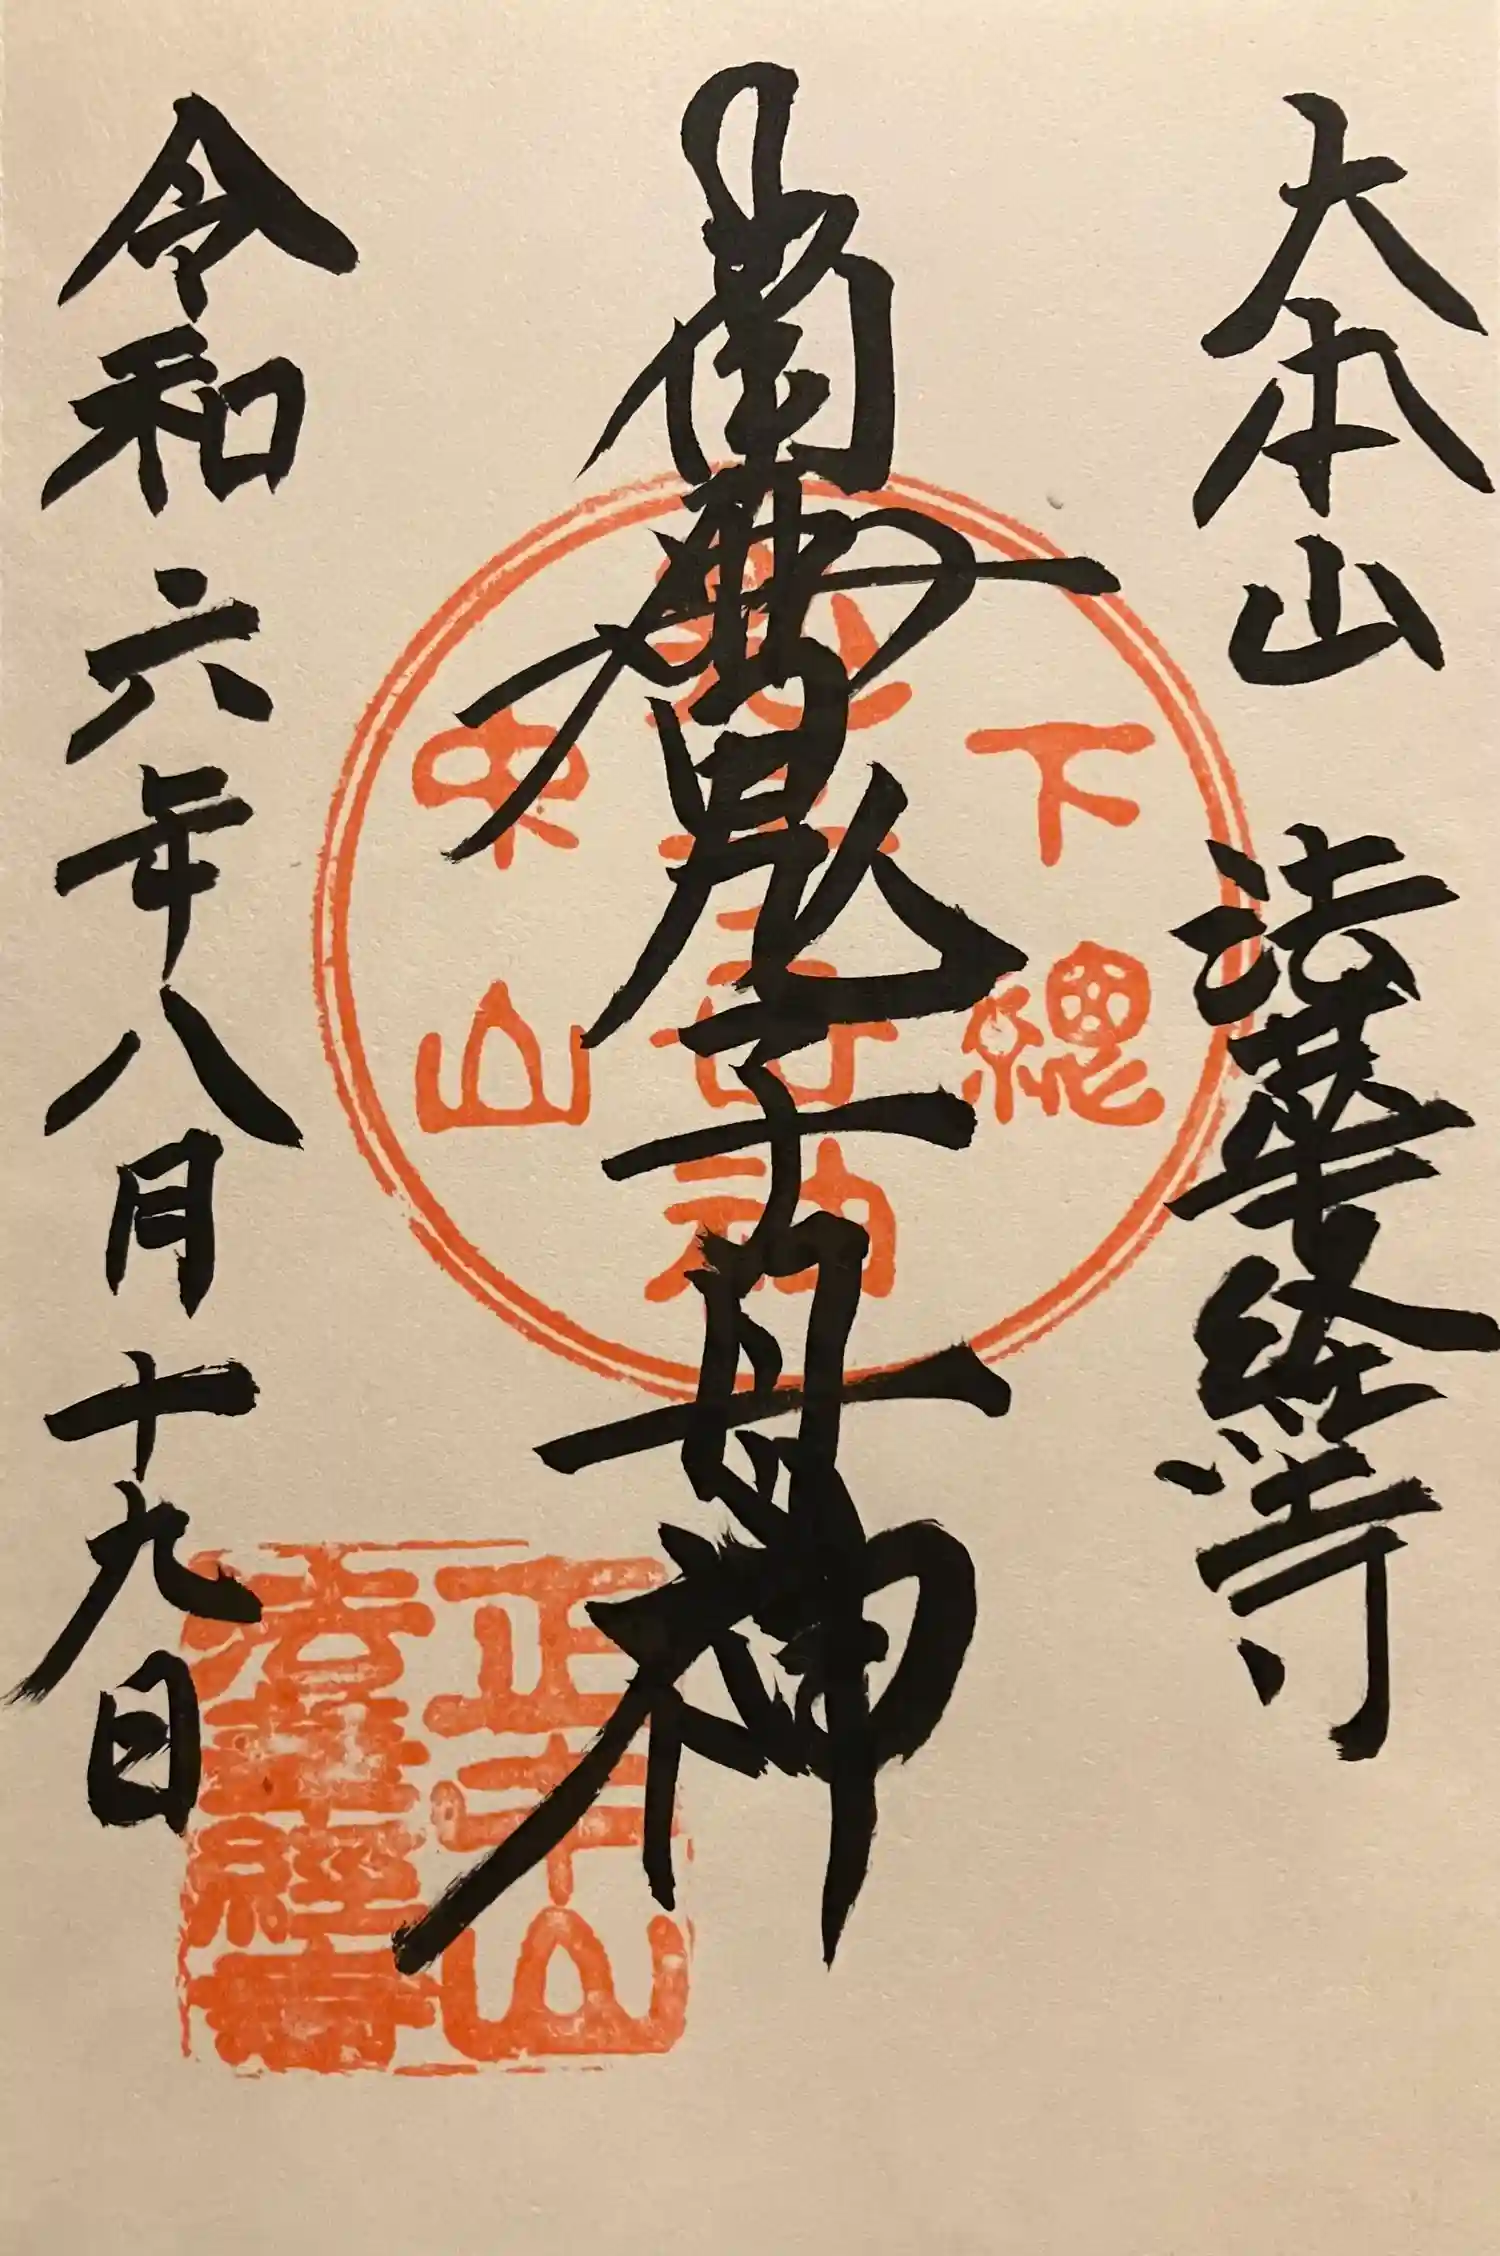 大本山 法華経寺
南無鬼子母神
令和六年八月十九日
下総
鬼子母神
中山
正中山
法華經寺